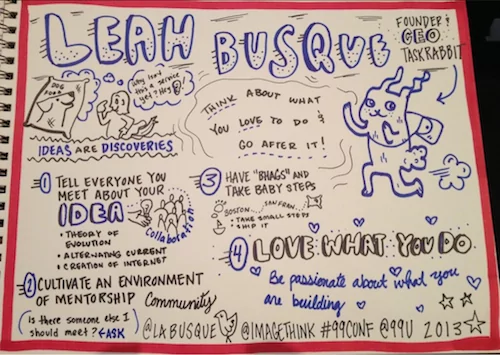 LEAH BUSQUE
FOUNDER &
CEO
TASKRABBIT
DOG
FOOD
Why isn't
this a service
yet? Hey!
IDEAS ARE DISCOVERIES
THINK ABOUT WHAT
YOU LOVE TO DO &
GO AFTER IT!
1 TELL EVERYONE YOU
MEET ABOUT YOUR
IDEA
• THEORY OF
EVOLUTION
• ALTERNATING CURRENT
• CREATION OF INTERNET
Collaboration
2 CULTIVATE AN ENVIRONMENT
OF MENTORSHIP Community
Is there someone else I
should meet? ← ASK
3 HAVE "BHAGS" AND
TAKE BABY STEPS
BOSTON SAN FRAN
• TAKE SMALL STEPS
• SHIP IT
4 LOVE WHAT YOU DO
Be passionate about what you
are building
@LABUSQUE @IMAGETHINK #99CONF @99U 2013